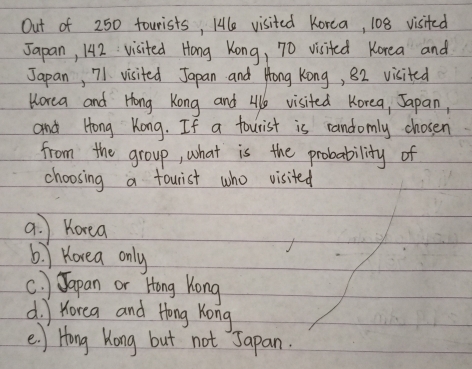 Out of 250 tourists, 146 visited Korea, 108 visited
Japan, 142 visited Hong Kong, 70 visited Korea and
Japan, 71 visited Japan and Hong Kong, 82 visited
Korea and Hong Kong and 46 visited Korea, Japan,
and Hong Kong. If a tourist is randomly chosen
from the group, what is the probability of
choosing a tourist who visited
a.) Korea
b.) Korea only
c.) Japan or Hong Kong
d.) Korea and Hong Kong
e.) Hong Kong but not Japan.